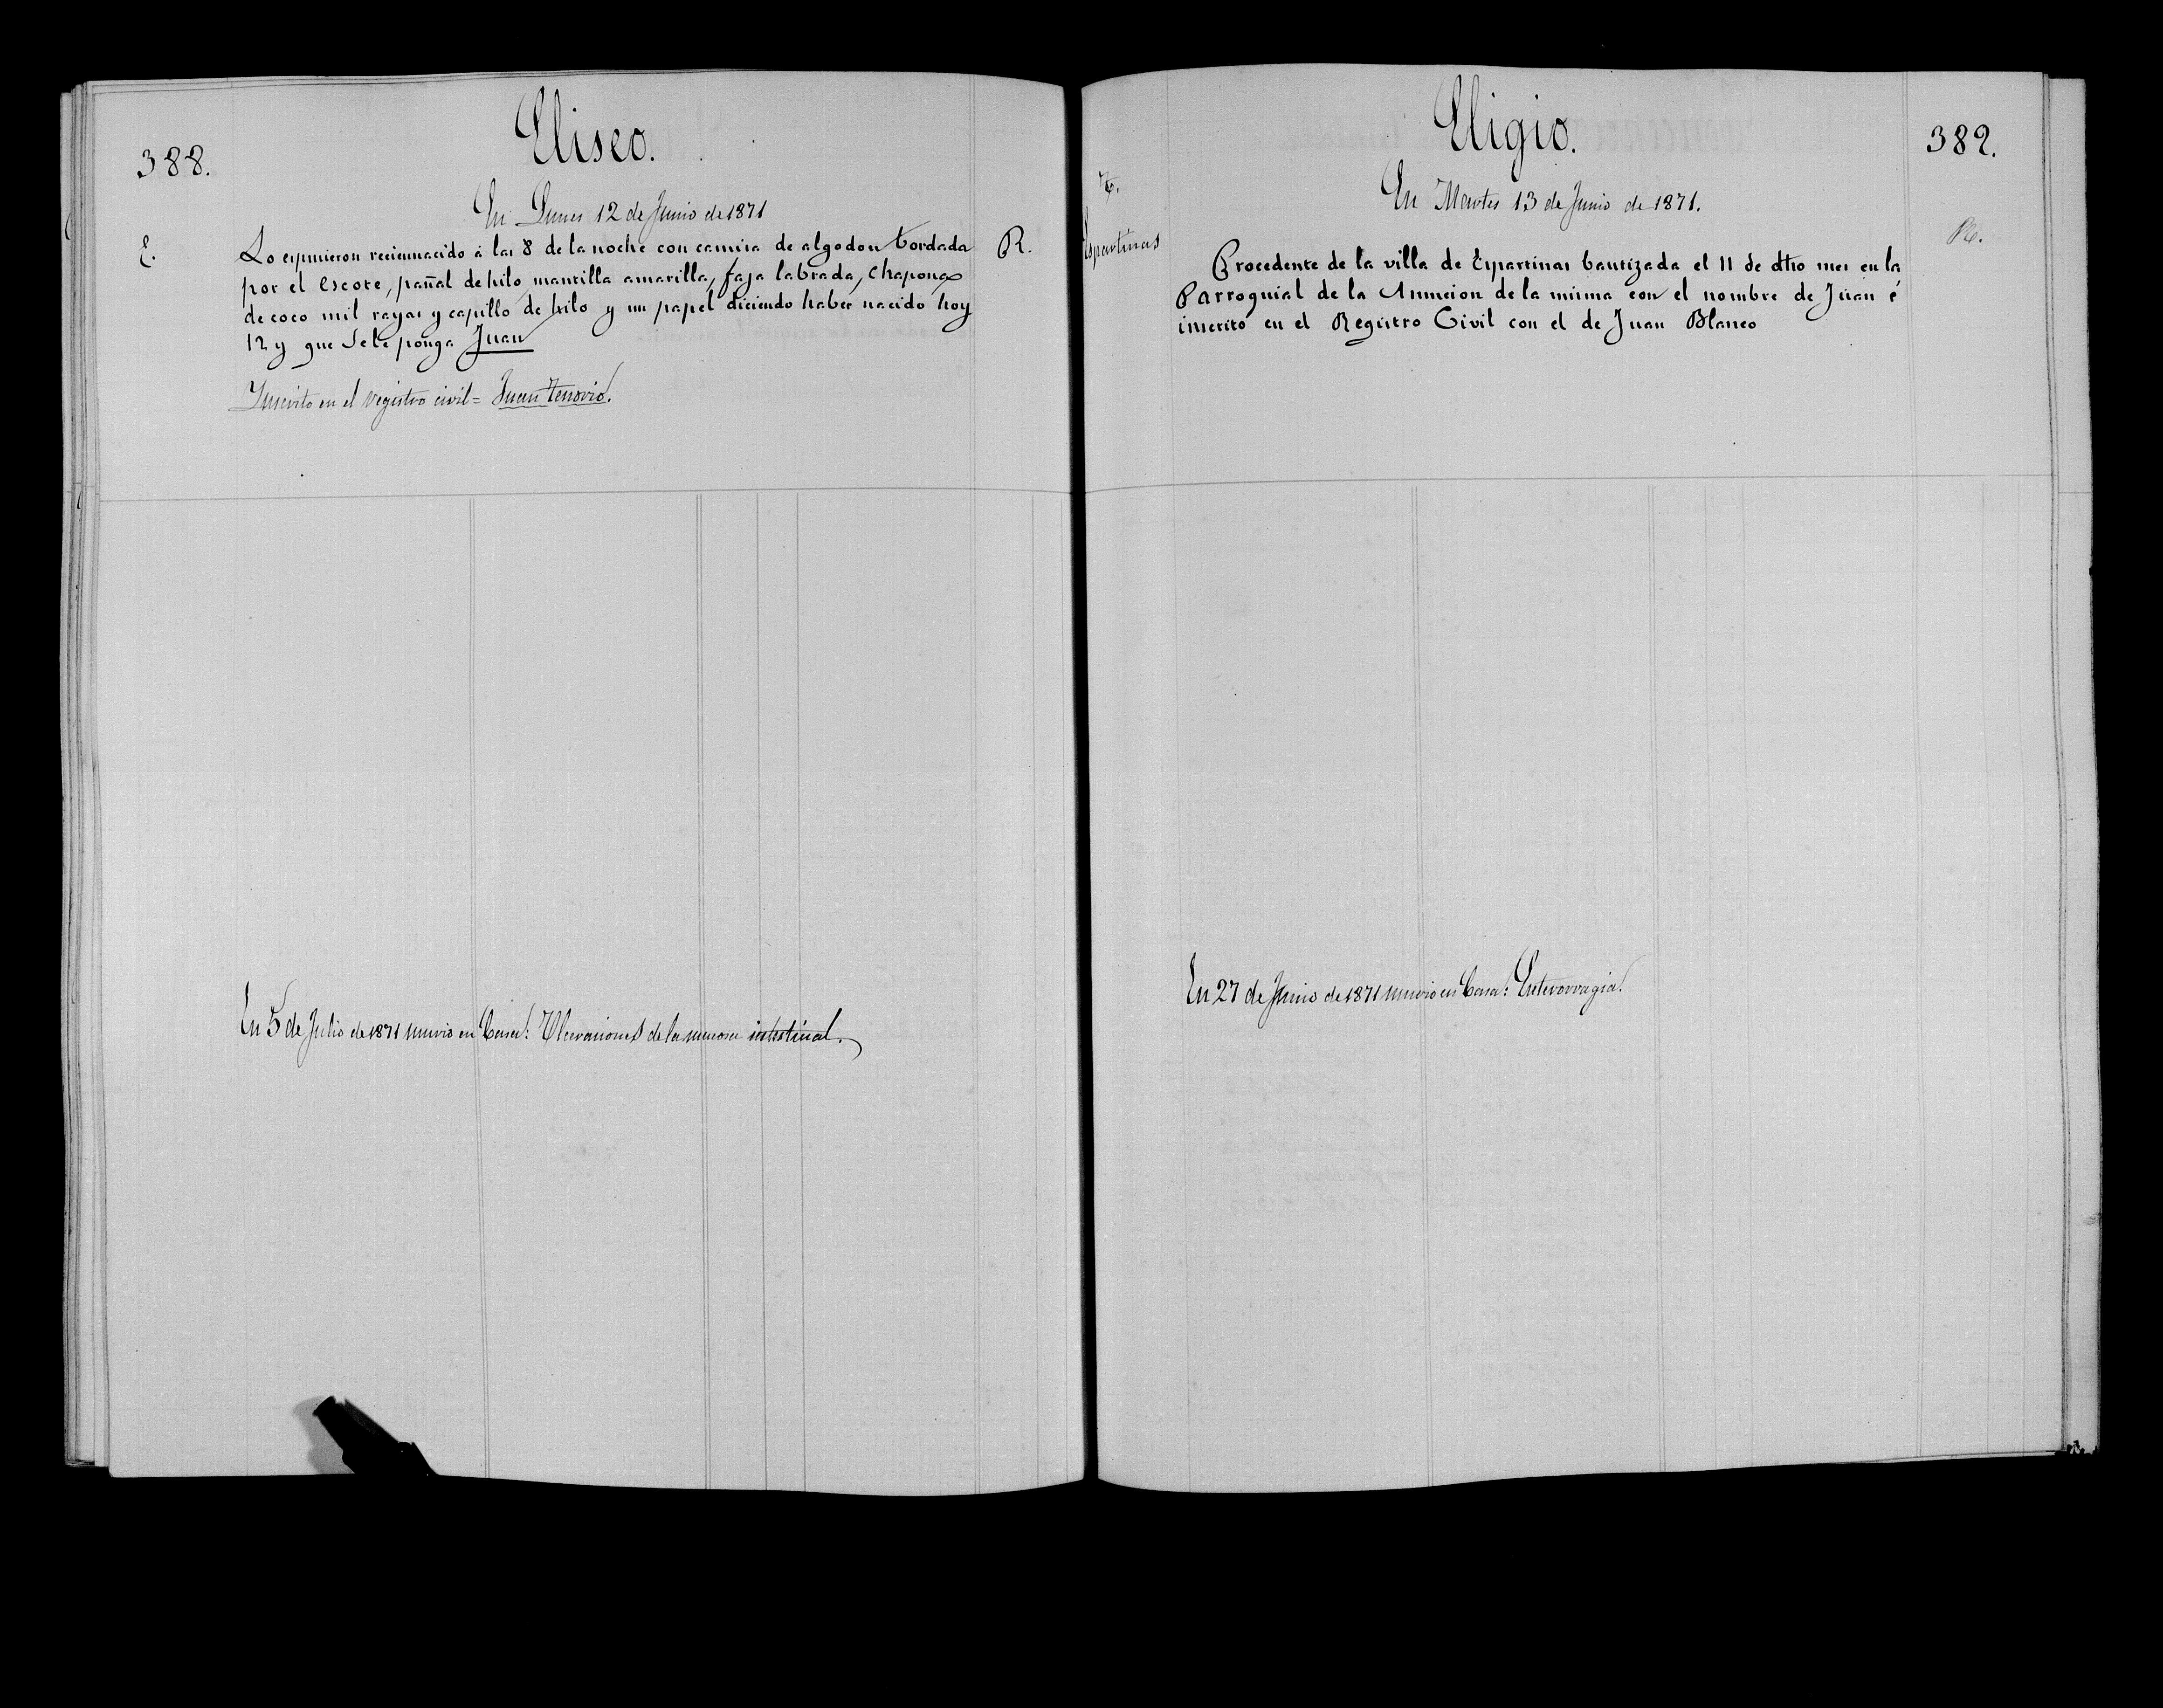 388.
Eliseo.
En Lunes 12 de Junio de 1871
E.
Lo espusieron reciennacido á las 8 de la noche con camisa de algodon bordada
R.
por el escote, pañal de hilo mantilla amarilla, faja labrada, chapona
de coco mil rayas y capillo de hilo y un papel diciendo haber nacido hoy
12 y que se le ponga Juan
Inscrito en el registro civil = Juan Tenorio.
En 5 de Julio de 1871 murió en Casa: Ulceraciones de la mucosa intestinal.
Eligio.
382.
En Martes 13 de Junio de 1871.
Espartinas
Procedente de la villa de Espartinas bautizada el 11 de dho mes en la
Parroquial de la Asuncion de la misma con el nombre de Juan é
inscrito en el Registro Civil con el de Juan Blanco
En 27 de Junio de 1871 murió en Casa: Enterorragia.